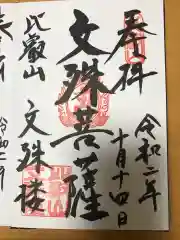 奉拝
令和二年
十月十四日
文殊菩薩
比叡山
文殊楼